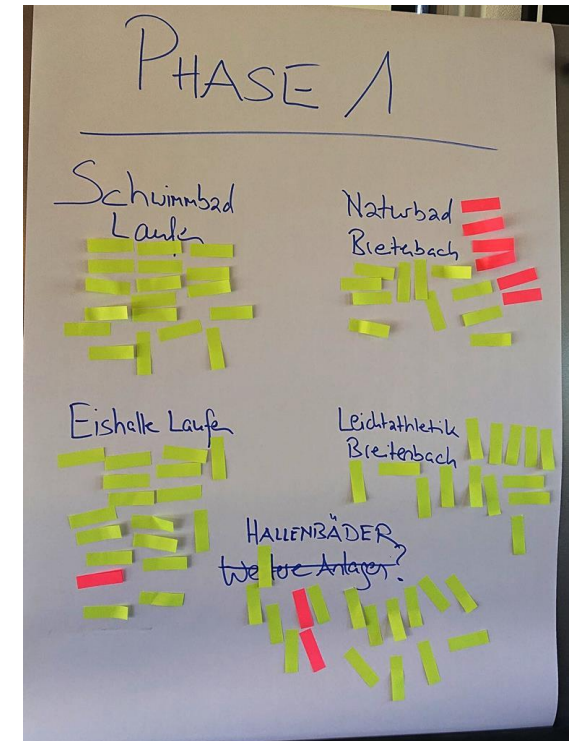 PHASE 1
Schwimmbad
Laufen
Naturbad
Breitenbach
Eishalle Laufen
Leichtathletik
Breitenbach
HALLENBÄDER
Weitere Anlagen?